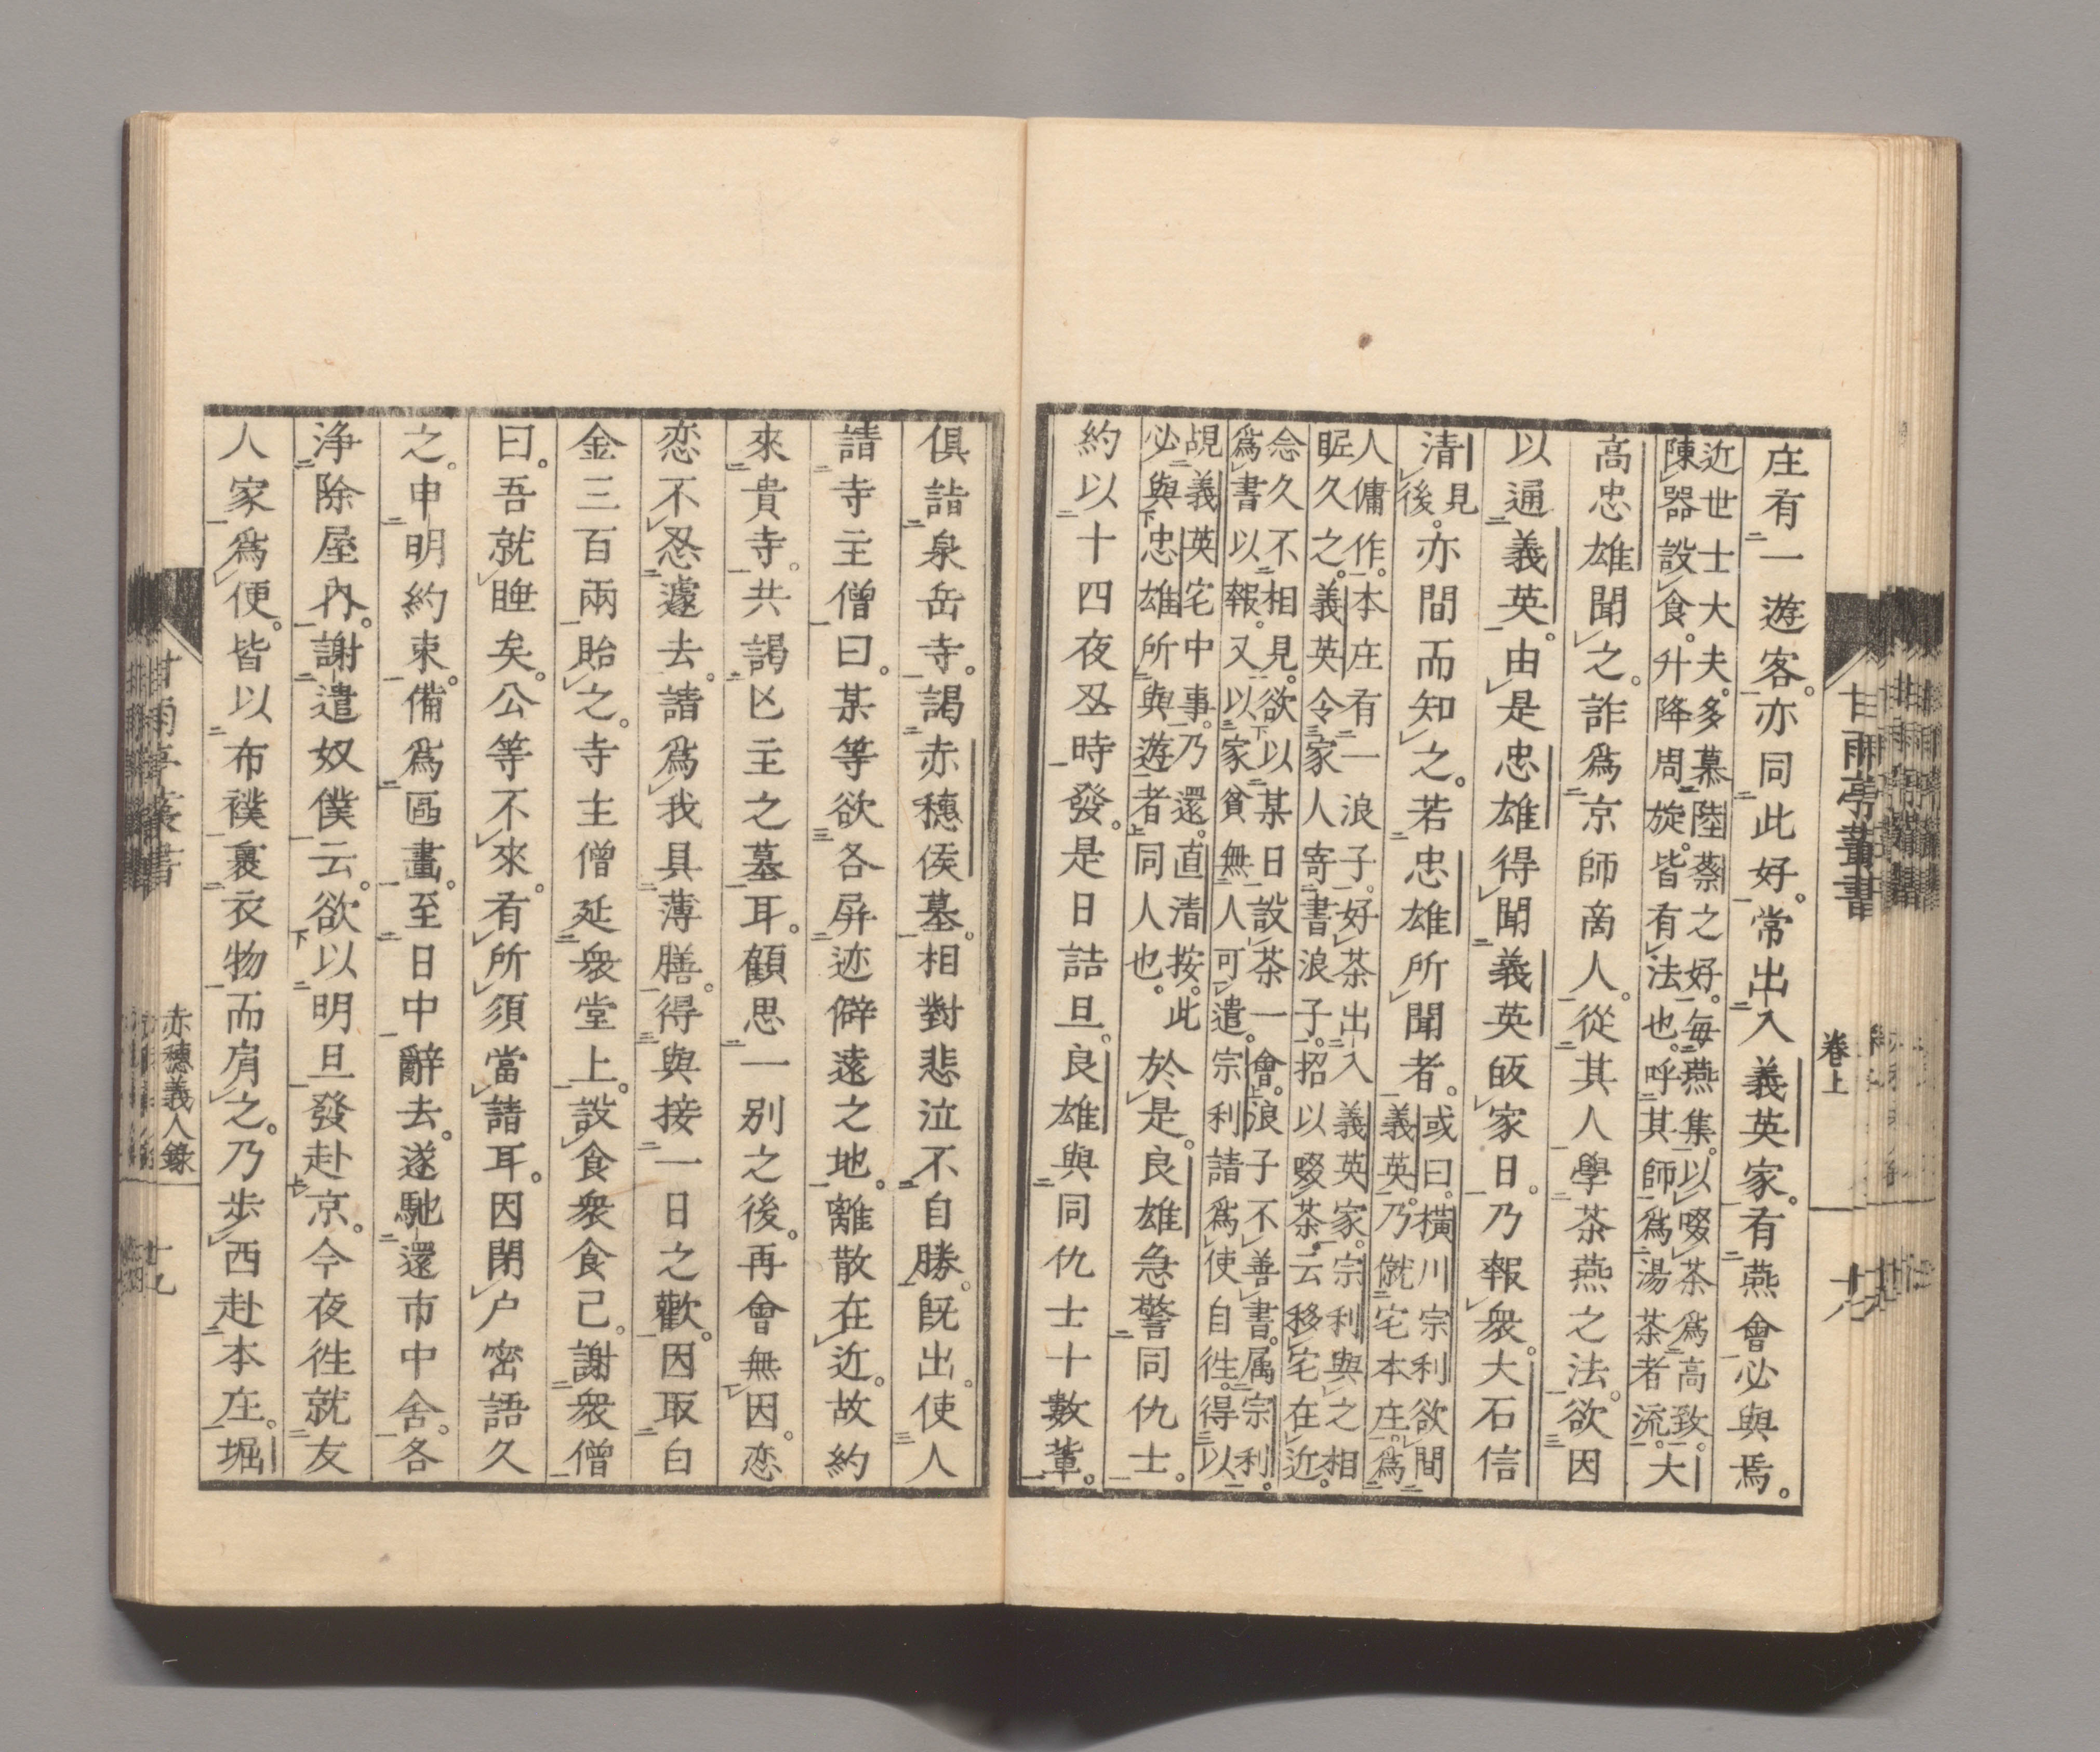 庄有一遊客。亦同此好。常出入義英家。有燕會必與焉。
近世士大夫。多慕陸蔡之好。毎燕集。以啜茶爲高致。
陳器設食。升降周旋。皆有法也。呼其師爲湯茶者流。大
高忠雄聞之。詐爲京師商人。從其人學茶燕之法。欲因
以通義英。由是忠雄得聞義英皈家日。乃報衆。大石信
清見後。亦間而知之。若忠雄所聞者。
或曰。横川宗利欲間
義英。乃僦宅本庄。爲
人傭作。本庄有一浪子。好茶出入義英家。宗利與之相
眤久之。義英令家人寄書浪子。招以啜茶。云移宅在近。
念久不相見。欲以某日設茶一會。浪子不善書。属宗利。
爲書以報。又以家貧無人可遣。宗利請爲使自徃。得以
覘義英宅中事。乃還。直清按。此
必與忠雄所與遊者同人也。
於是。良雄急警同仇士。
約以十四夜丑時發。是日詰旦。良雄與同仇士十數輩。
甘雨亭叢書
卷上
俱詣泉岳寺。謁赤穗侯墓。相對悲泣不自勝。既出。使人
請寺主僧曰。某等欲各屏迹僻遠之地。離散在近。故約
來貴寺。共謁亾主之墓耳。顧思一別之後。再會無因。恋
恋不忍遽去。請爲我具薄膳。得與接一日之歡。因取白
金三百兩貽之。寺主僧延衆堂上。設食衆食已。謝衆僧
曰。吾就睡矣。公等不來。有所須當請耳。因閉户密語久
之。申明約束。備爲區畫。至日中辭去。遂馳還市中舍。各
淨除屋内。謝遣奴僕云。欲以明旦發赴京。今夜徃就友
人家爲便。皆以布襆裹衣物而肩之。乃歩西赴本庄。堀
甘雨亭叢書
赤穗義人錄